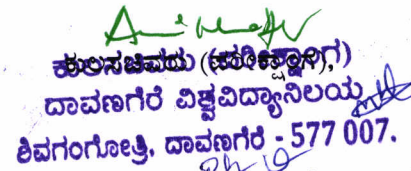 ಕುಲಸಚಿವರು (ಪರೀಕ್ಷಾಂಗ),
ದಾವಣಗೆರೆ ವಿಶ್ವವಿದ್ಯಾನಿಲಯ
ಶಿವಗಂಗೋತ್ರಿ, ದಾವಣಗೆರೆ - 577 007.